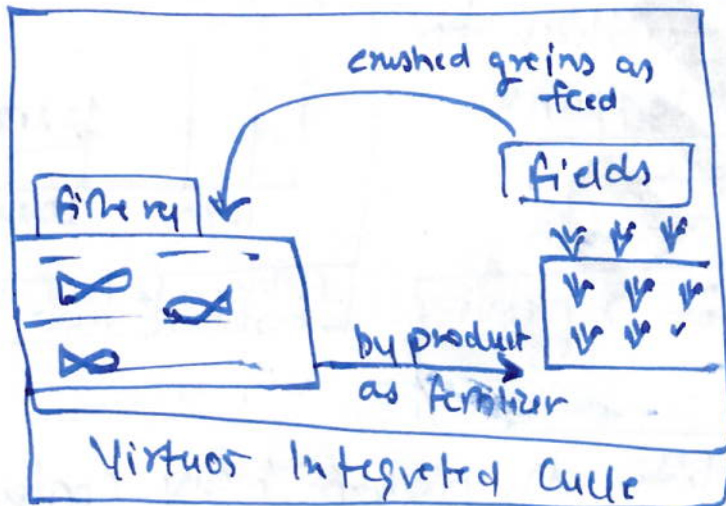 crushed greins as
feed
fields
fishery
by product
as fertilizer
Virtuos Integreted Cycle